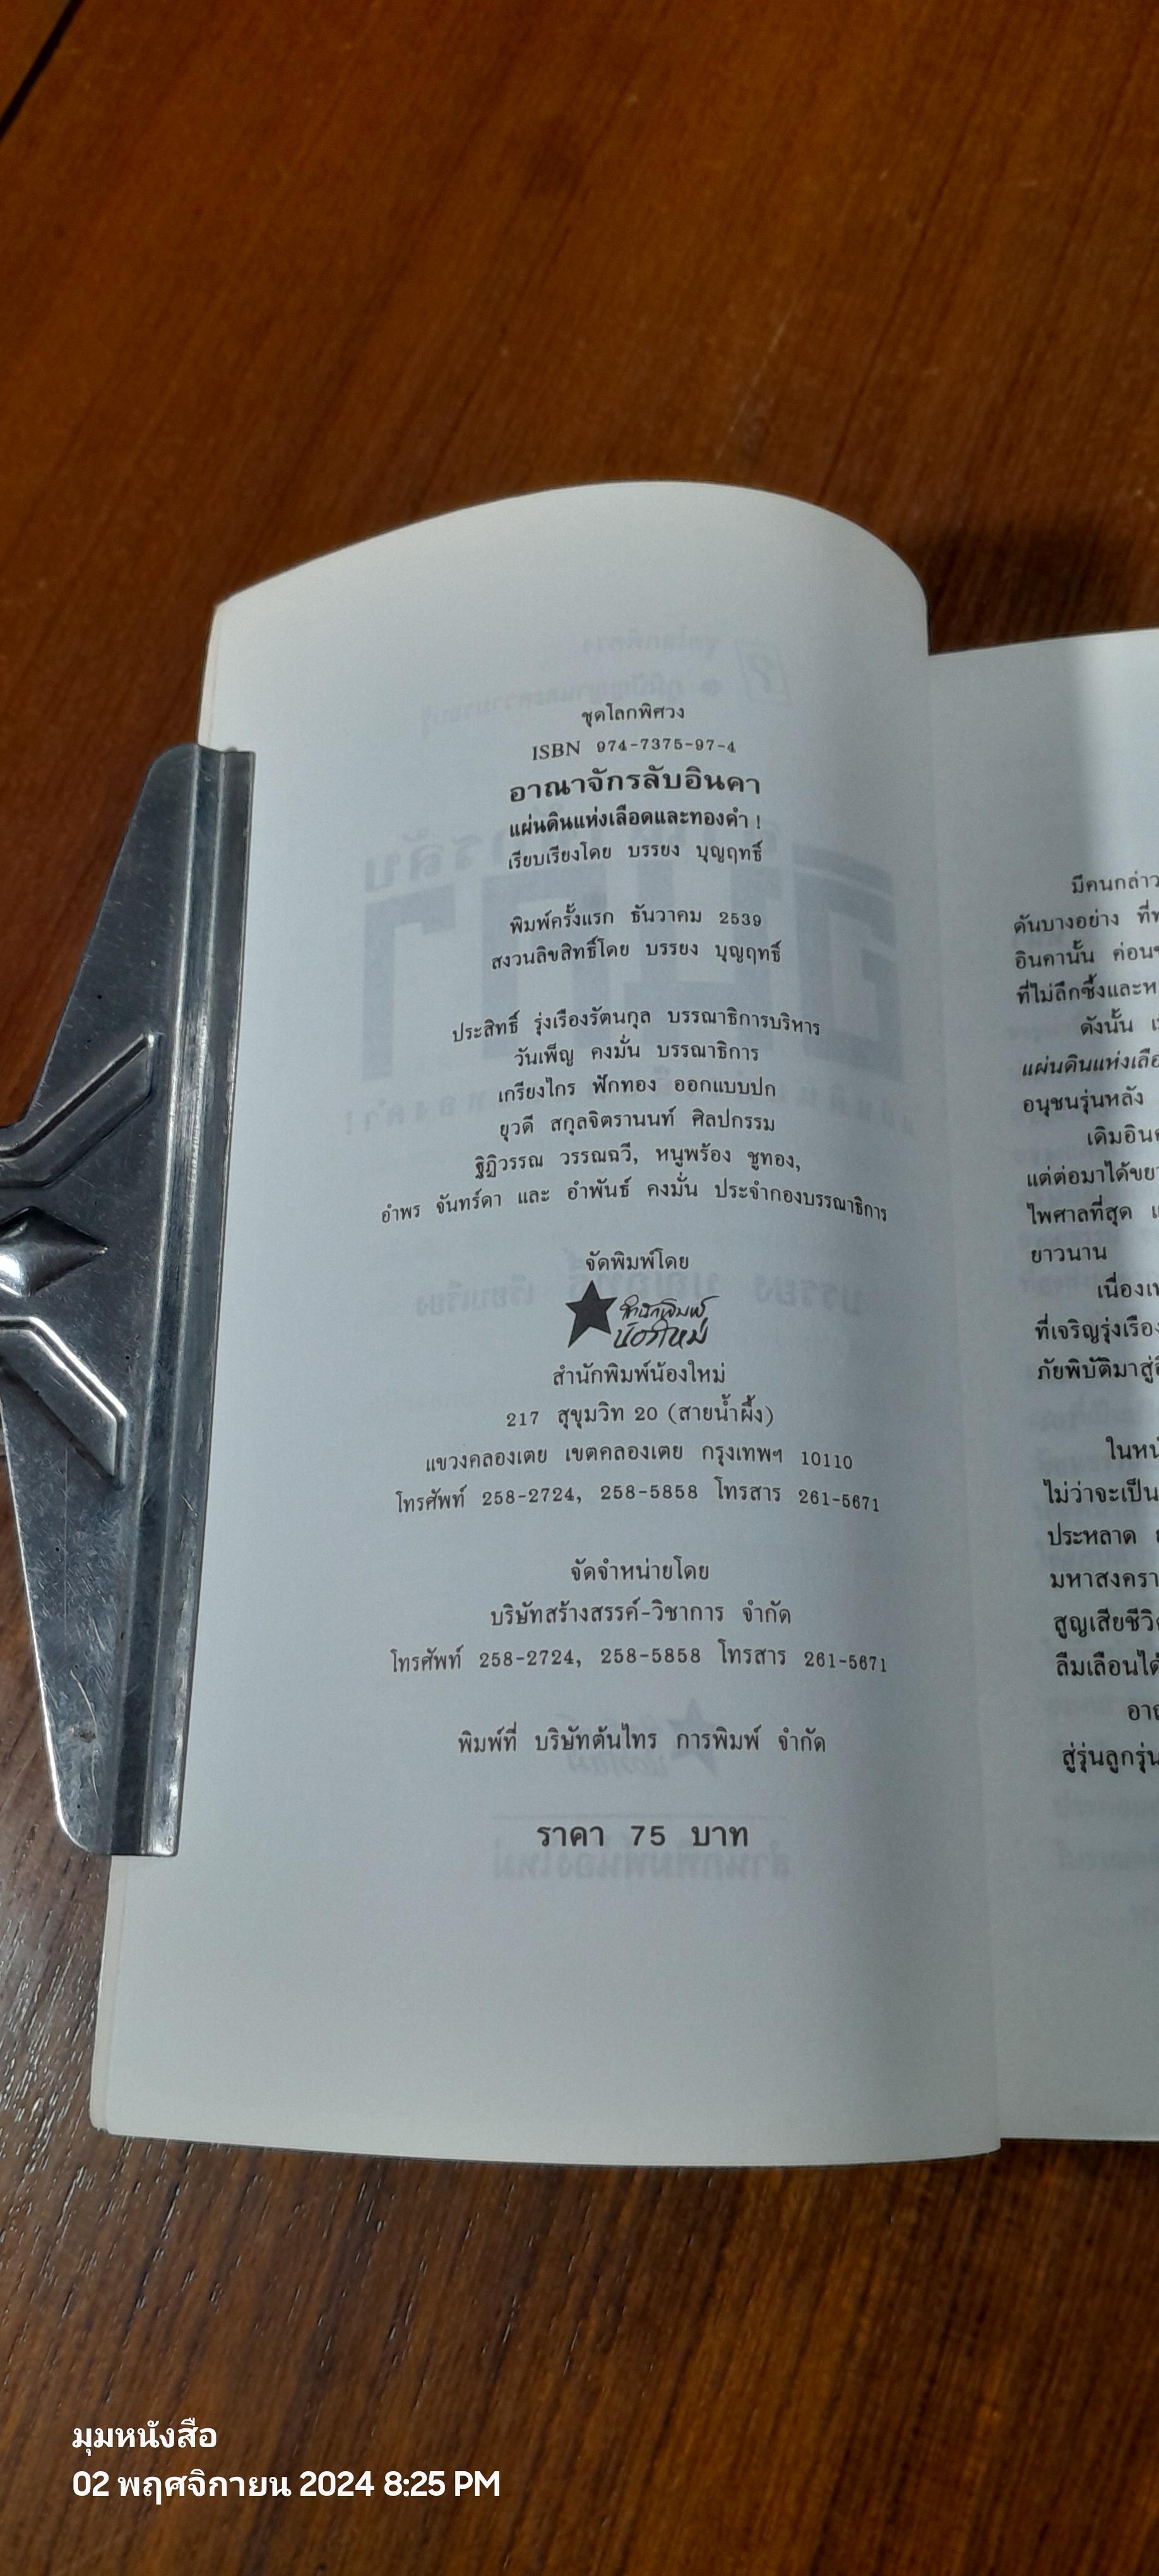 ชุดโลกพิศวง
ISBN 974-7375-97-4
อาณาจักรลับอินคา
แผ่นดินแห่งเลือดและทองคำ !
เรียบเรียงโดย บรรยง บุญฤทธิ์
พิมพ์ครั้งแรก ธันวาคม 2539
สงวนลิขสิทธิ์โดย บรรยง บุญฤทธิ์
ประสิทธิ์ รุ่งเรืองรัตนกุล บรรณาธิการบริหาร
วันเพ็ญ คงมั่น บรรณาธิการ
เกรียงไกร ฟักทอง ออกแบบปก
ยุวดี สกุลจิตรานนท์ ศิลปกรรม
ฐิฏิวรรณ วรรณฉวี, หนูพร้อง ชูทอง,
อำพร จันทร์ดา และ อำพันธ์ คงมั่น ประจำกองบรรณาธิการ
จัดพิมพ์โดย
สำนักพิมพ์
น้องใหม่
สำนักพิมพ์น้องใหม่
217 สุขุมวิท 20 (สายน้ำผึ้ง)
แขวงคลองเตย เขตคลองเตย กรุงเทพฯ 10110
โทรศัพท์ 258-2724, 258-5858 โทรสาร 261-5671
จัดจำหน่ายโดย
บริษัทสร้างสรรค์-วิชาการ จำกัด
โทรศัพท์ 258-2724, 258-5858 โทรสาร 261-5671
พิมพ์ที่ บริษัทต้นไทร การพิมพ์ จำกัด
ราคา 75 บาท
มีคนกล่าว
ดันบางอย่าง
อินคานั้น ค่อน
ที่ไม่ลึกซึ้งและ
ดังนั้น
แผ่นดินแห่งเลือ
อนุชนรุ่นหลัง
เดิมอิน
แต่ต่อมาได้ขยา
ไพศาลที่สุด
ยาวนาน
เนื่อง
ที่เจริญรุ่งเรือง
ภัยพิบัติมาสู่
ในหน
ไม่ว่าจะเป็น
ประหลาด
มหาสงครา
สูญเสียชีวิ
ลืมเลือนได้
อาณ
สู่รุ่นลูกรุ่น
มุมหนังสือ
02 พฤศจิกายน 2024 8:25 PM